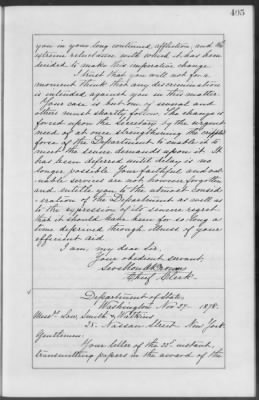 405
you in your long continued affliction, and the
extreme reluctance with which it has been
decided to make this imperative change.
I trust that you will not for a
moment think that any discrimination
is intended against you in this matter.
Your case is but one of several and
others must shortly follow. The change is
forced upon the Secretary by the urgent
need of at once strengthening the
force of the Department to enable it to
meet the severe demands upon it. It
has been deferred until delay is no
longer possible. Your faithful and
services are not however forgotten
and entitle you to the utmost consid
eration of the Department as well as
to the expression of its sincere regret
that it should have been for so long a
time deprived through illness of your
efficient aid.
I am, my dear Sir,
Your obedient servant,
Sevellon A. Brown
Chief Clerk.
Department of State,
Washington Nov 27 1878.
Messrs Law, Smith & Watkins
38 Nassau Street New York
Gentlemen:
Your letter of the 25th instant,
transmitting papers in the award of the